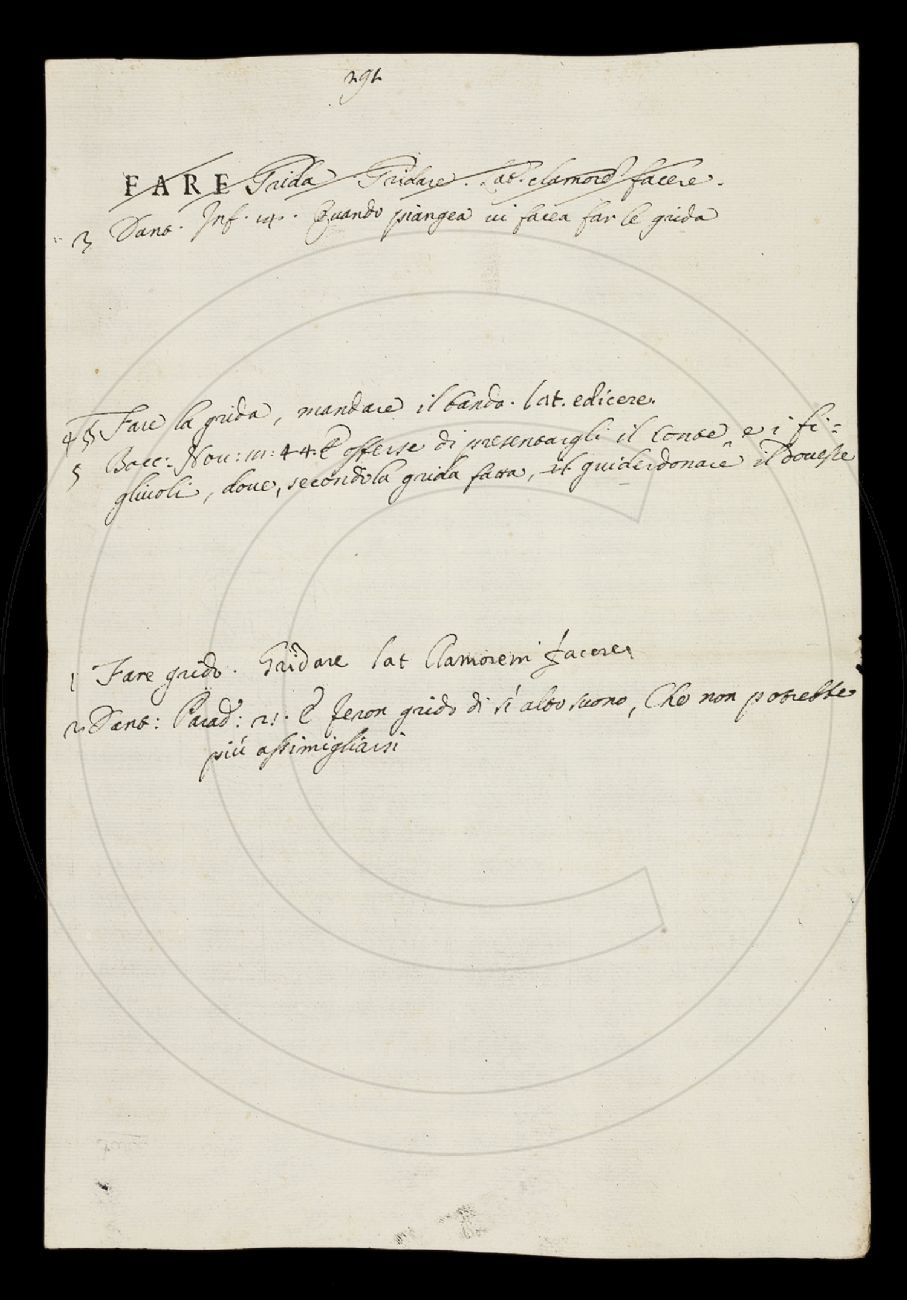 291
FARE Grida Gridare. Lat. clamorē facere.
3 Dant. Inf. 14. Quando piangea vi facea far le grida
4 § Fare la grida, mandare il bando. lat. edicere.
5 Bocc: Nov: 18: 44. E offerse di presentargli il Conte e i fi=
gliuoli, dove, secondo la grida fatta, guiderdonare il dovesse
1 Fare grido. Gridare lat Clamorem facere,
2 Dant: Parad: 21. E feron grido di sí alto suono, Che non potrebbe
piú assimigliarsi